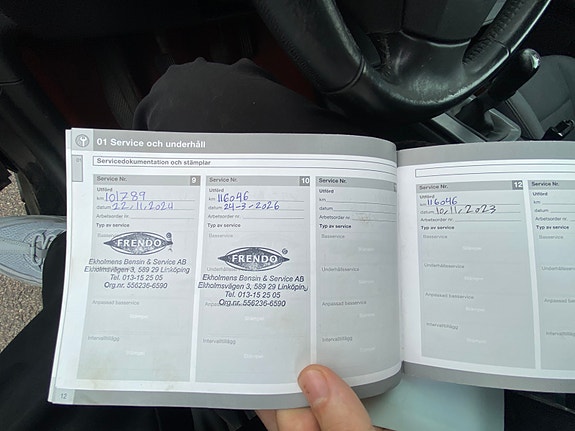 01 Service och underhåll
01
Servicedokumentation och stämplar
Service Nr. 9
Utförd
km 101789
datum 22.11.2024
Arbetsorder nr.
Typ av service
Basservice
FRENDO
Ekholmens Bensin & Service AB
Ekholmsvägen 3, 589 29 Linköping
Tel. 013-15 25 05
Org.nr. 556236-6590
Anpassad basservice
Stämpel
Intervalltillägg
Stämpel
12
Service Nr. 10
Utförd
km 116046
datum 24-3-2026
Arbetsorder nr.
Typ av service
Basservice
FRENDO
Underhållsservice
Ekholmens Bensin & Service AB
Ekholmsvägen 3, 589 29 Linköping
Tel. 013-15 25 05
Org.nr. 556236-6590
Anpassad
Stämpel
Intervalltillägg
Stämpel
Service Nr.
Utförd
km
datum
Arbetsorder nr.
Typ av service
Basservice
Stämpel
Underhållsservice
Stämpel
Anpassad basservice
Stämpel
Intervalltillägg
Stämpel
Service Nr. 12
Utförd
km 116046
datum 10/11.2023
Arbetsorder nr.
Typ av service
Basservice
Stämpel
Underhållsservice
Stämpel
Anpassad basservice
Stämpel
Intervalltillägg
Stämpel
Service Nr.
Utförd
km
datum
Arbetsorder
Typ av service
Basservice
Underhållsservice
Anpassad basservice
Intervalltillägg